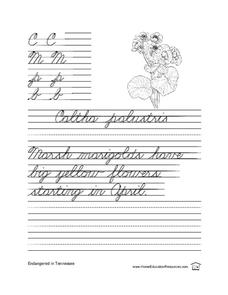 C C
M M
p p
b b
Caltha palustris
Marsh marigolds have
big yellow flowers
starting in April.
Endangered in Tennessee
www.HomeEducationResources.com